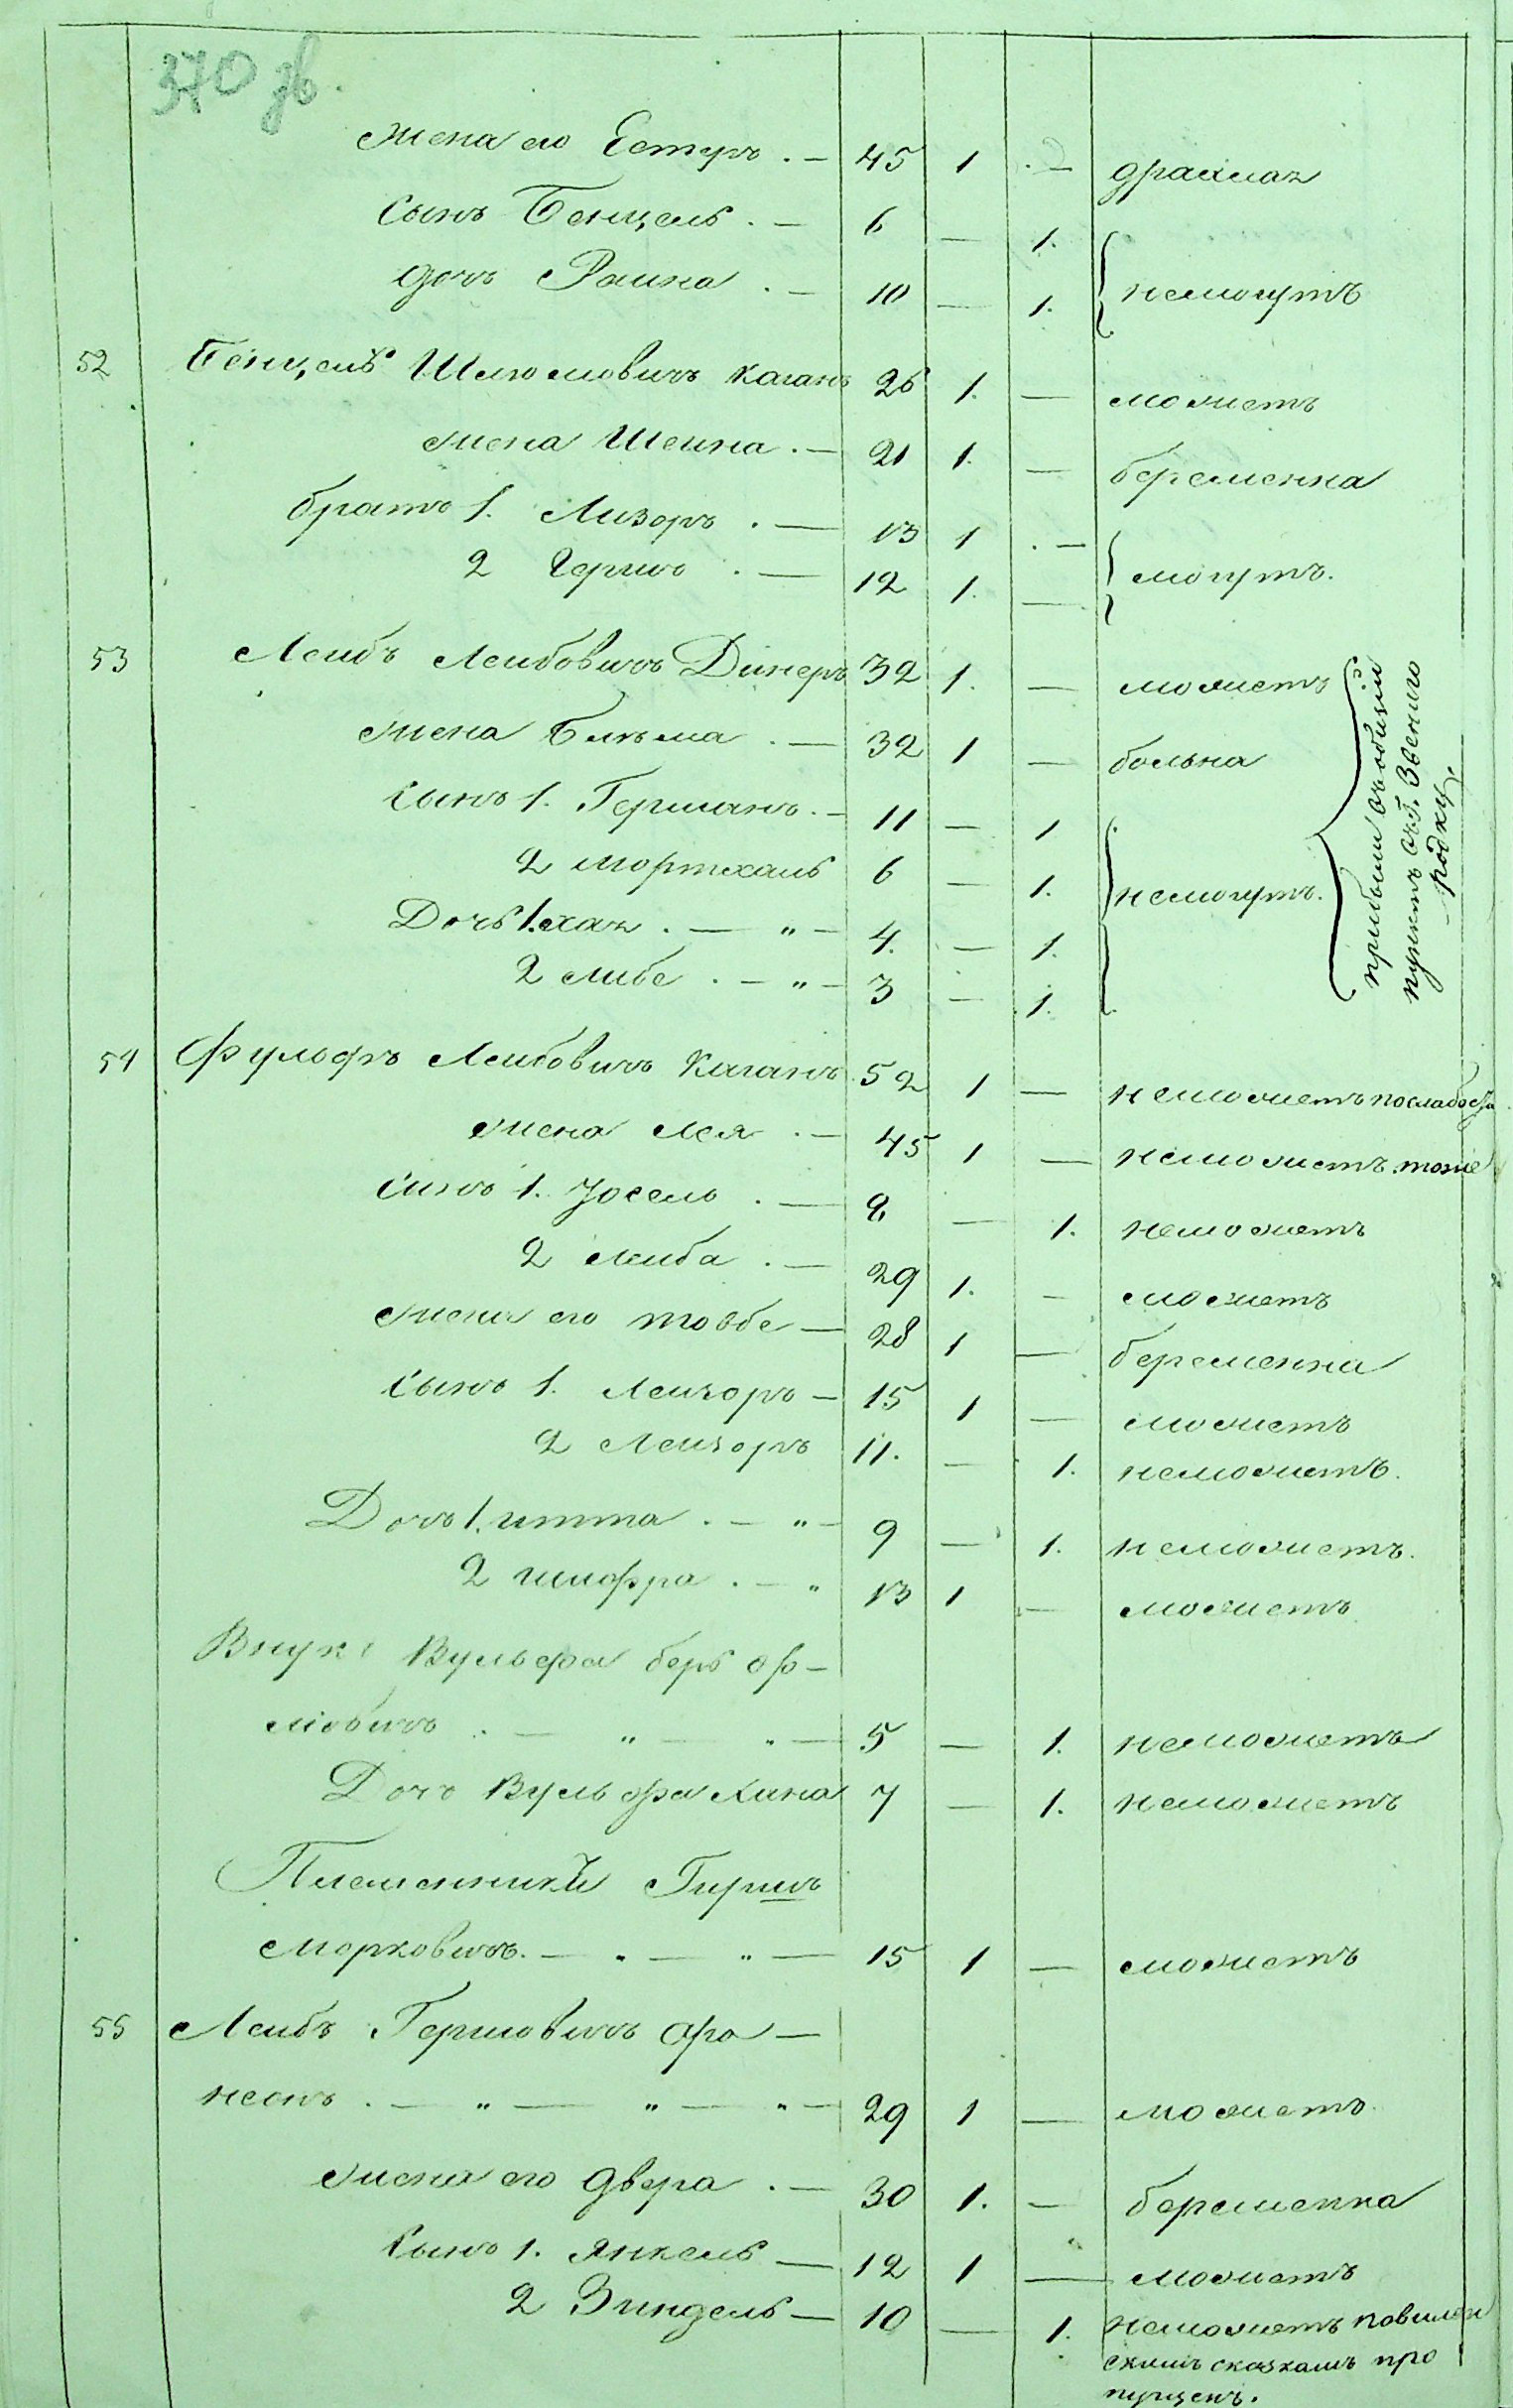 370 зв.
жена его Естеръ . — 45 1 . — драхлая
сынъ Бенцель . — 6 — 1.
дочь Раина . — 10 — 1. немогутъ
52 Бенцель Шлиомовичъ Каганъ 26 1. — можетъ
жена Шеина . — 21 1. — беременна
братъ 1. Лизоръ . — 13 1 . —
2 Гершъ . — 12 1. — могутъ.
53 Леибъ Леибовичъ Динеръ 32 1. — можетъ
жена Блюма . — 32 1 — больна
сынъ 1. Германъ . — 11 — 1
2 Мортхаль 6 — 1. немогутъ.
Дочь 1. хая . — „ — 4. — 1.
2 либе . — „ — 3 — 1.
прибыли въ обции
пунктъ съ г. Звениго
родку.
54 Фульфъ Леибовичъ Каганъ 52 1 — неможетъ послабости
жена Лея . — 45 1 — неможетъ тоже
сынъ 1. Иосель . — 9 — 1. неможетъ
2 Леиба . — 29 1. — можетъ
жена его товбе — 28 1 — беременна
сынъ 1. Леизоръ — 15 1 — можетъ
2 Леизоръ 11. — 1. неможетъ.
Дочь 1. итта . — „ — 9 — 1. неможетъ.
2 шифра . — „ 13 1 — можетъ
Внукъ Вульфа беръ Ор-
лиовичъ . — „ — „ — 5 — 1. неможетъ
Дочь Вульфа Хина 7 — 1. неможетъ
Племянникъ Гиршъ
Морковичъ. — „ — „ — 15 1 — можетъ
55 Леибъ Гершовичъ Аро —
несонъ . — „ — „ — „ — 29 1 — можетъ.
жена его Двера . — 30 1. — беременна
сынъ 1. Янкель — 12 1 — можетъ
2 Зиндель — 10 — 1. неможетъ
скимъ сказкамъ про
пущенъ.